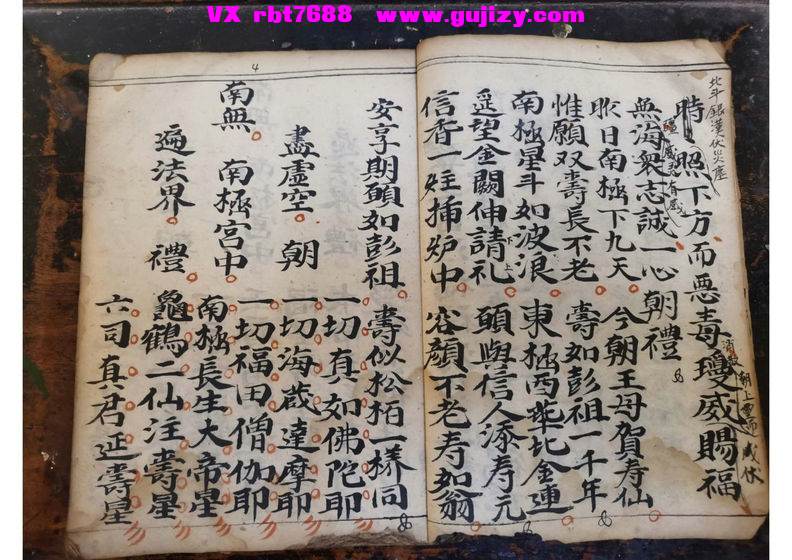 VX rbt7688 www.gujizy.com
北斗銀漢伏災
時照下方而惡毒瓊威賜福
無海衆志誠一心朝禮
昨日南極下九天 今朝王母賀寿仙
惟願双壽長不老 壽如彭祖一千年
南極星斗如波浪 東極西華比金蓮
遥望金闕伸請礼 頭與信人添寿元
信香一炷插炉中 容顔不老寿如翁
4
安享期頤如彭祖 壽似松栢一樣同
盡虚空 朝 一切真如佛陀耶
一切海蔵達摩耶
南無 南極宮中 一切福田僧伽耶
南極長生大帝星
遍法界 禮 龜鶴二仙注壽星
六司真君延壽星